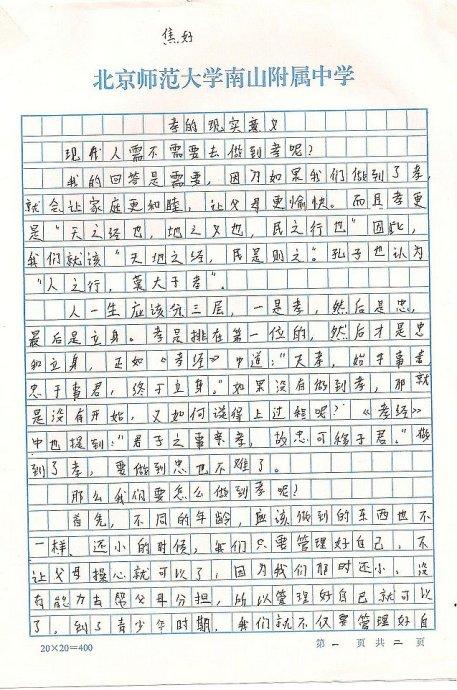 焦好
北京师范大学南山附属中学
孝的现实意义
现代人需不需要去做到孝呢?
我的回答是需要,因为如果我们做到了孝,
就会让家庭更和睦,让父母更愉快。而且孝更
是“天之经也,地之义也,民之行也”因此,
我们就该“天地之经,民是则之”。孔子也认为
“人之行,莫大于孝”。
人一生应该分三层,一是孝,然后是忠,
最后是立身。孝是排在第一位的,然后才是忠
和立身,正如《孝经》中道:“夫孝,始于事亲,
忠于事君,终于立身。”如果没有做到孝,那就
是没有开始,又如何谈得上过程呢?《孝经》
中也提到:“君子之事亲孝,故忠可移于君。”做
到了孝,要做到忠也不难了。
那么我们要怎么做到孝呢?
首先,不同的年龄,应该做到的东西也不
一样、还小的时候,我们只要管理好自己,不
让父母操心就可以了,因为我们那时还小,没
有能力去帮父母分担,所以管理好自己就可以
了。到了青少年时期,我们就不仅要管理好自
20×20=400
第 一 页 共 二 页